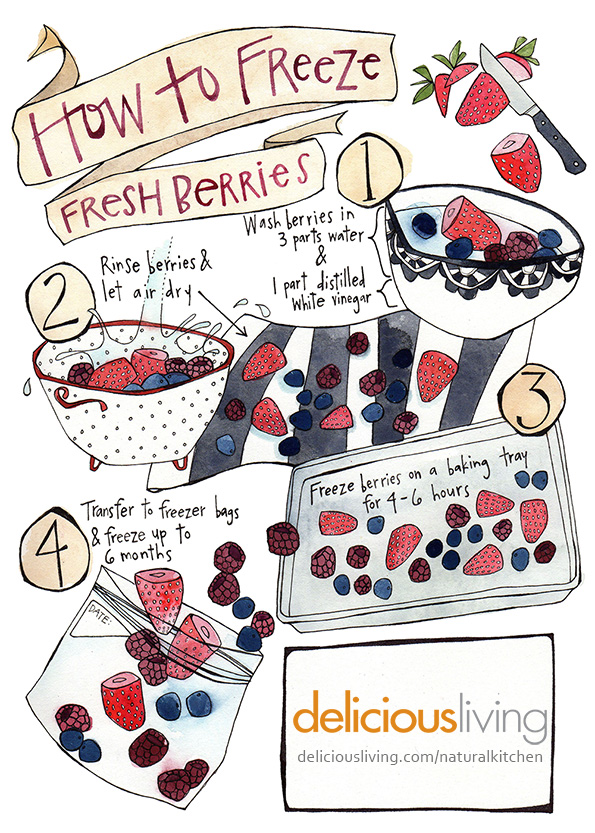 How to Freeze
Fresh Berries
1
Wash berries in
3 parts water
&
1 part distilled
white vinegar
2
Rinse berries &
let air dry
3
Freeze berries on a baking tray
for 4-6 hours
4
Transfer to freezer bags
& freeze up to
6 months
DATE:
deliciousliving
deliciousliving.com/naturalkitchen